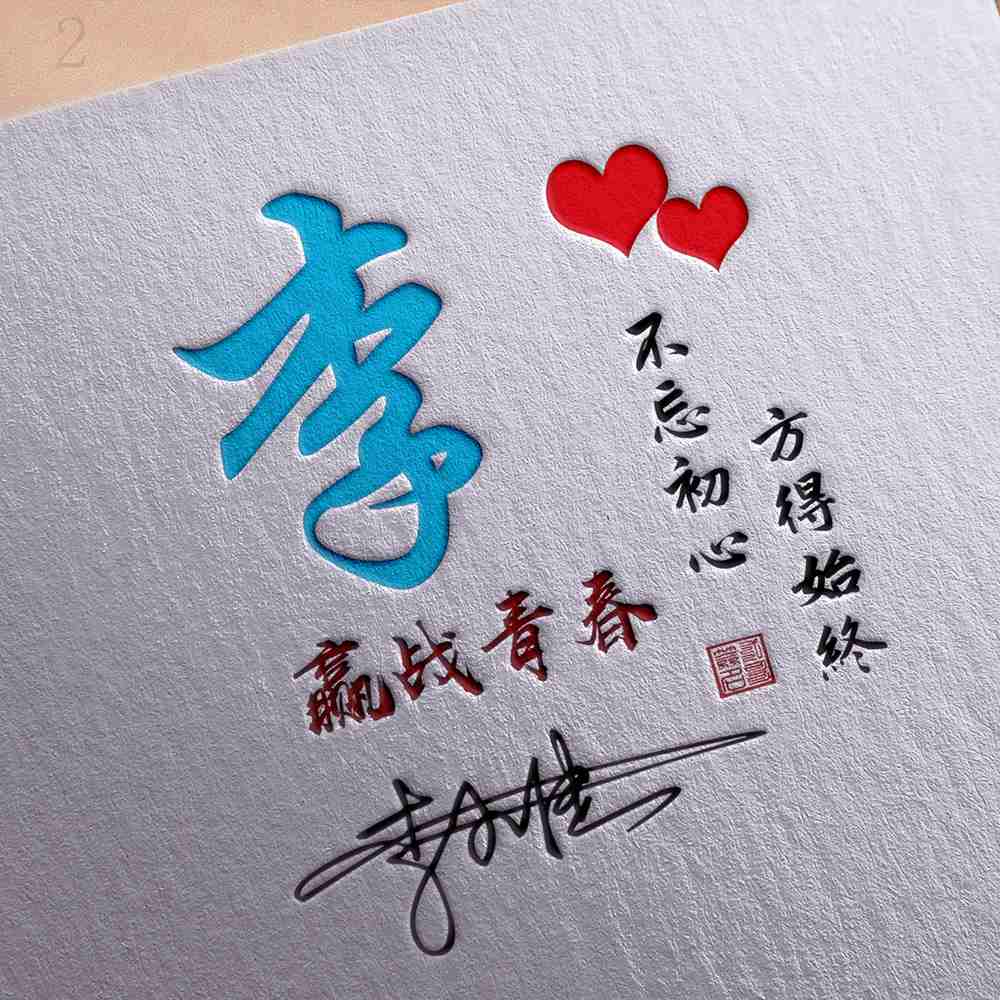 2
李
不忘初心
方得始终
赢战青春